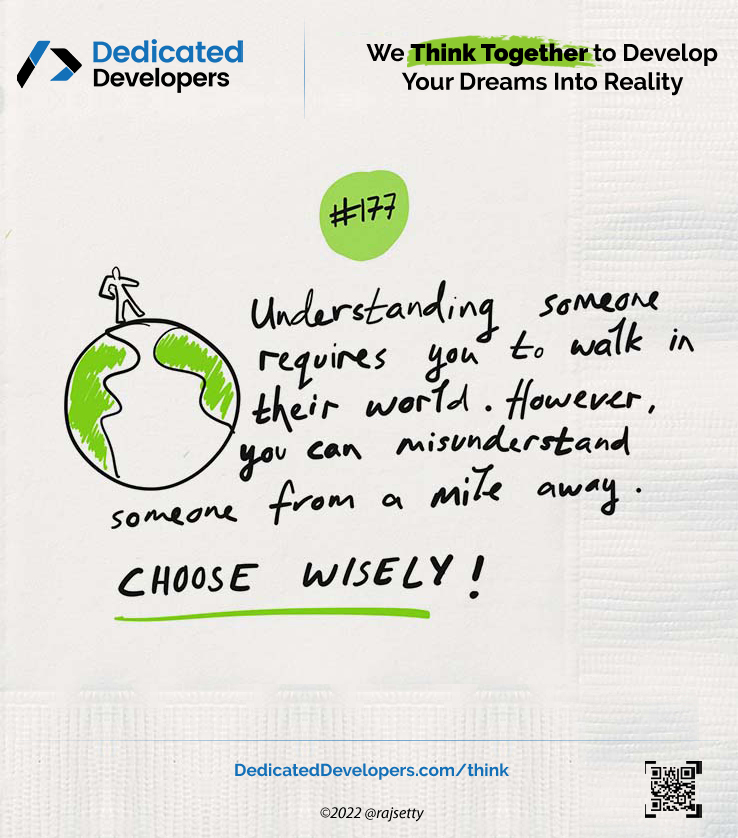 Dedicated
Developers
We Think Together to Develop
Your Dreams Into Reality
#177
Understanding someone
requires you to walk in
their world. However,
you can misunderstand
someone from a mile away.
CHOOSE WISELY!
DedicatedDevelopers.com/think
©2022 @rajsetty